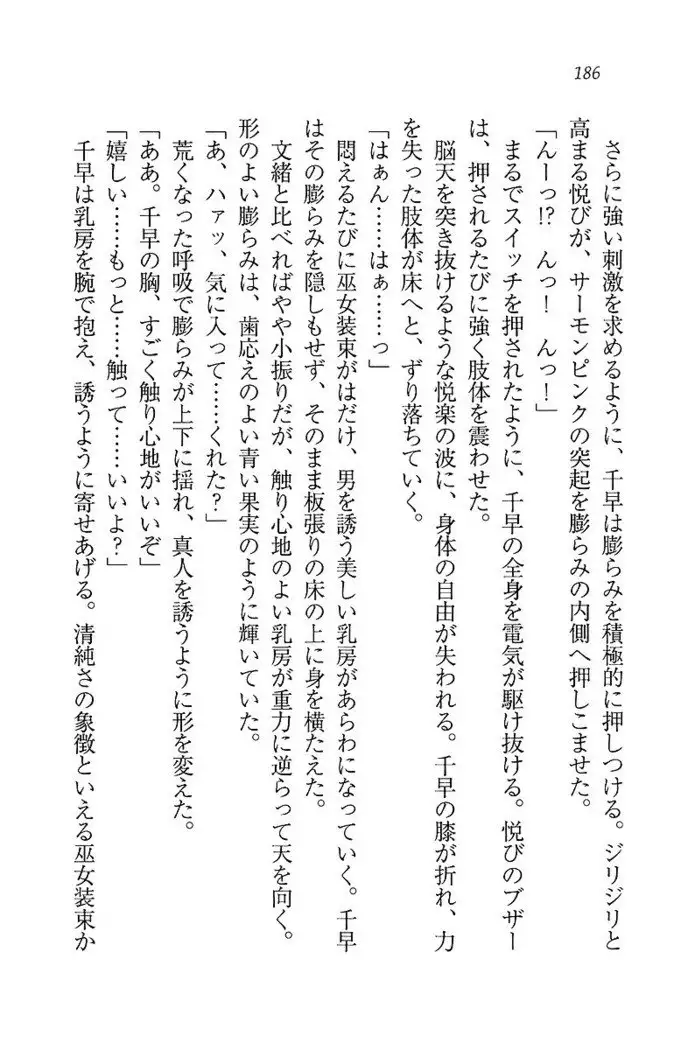 186
さらに強い刺激を求めるように、千早は膨らみを積極的に押しつける。ジリジリと
高まる悦びが、サーモンピンクの突起を膨らみの内側へ押しこませた。
「んーっ!?　んっ!　んっ!」
まるでスイッチを押されたように、千早の全身を電気が駆け抜ける。悦びのブザー
は、押されるたびに強く肢体を震わせた。
脳天を突き抜けるような悦楽の波に、身体の自由が失われる。千早の膝が折れ、力
を失った肢体が床へと、ずり落ちていく。
「はぁん……はぁ……っ」
悶えるたびに巫女装束がはだけ、男を誘う美しい乳房があらわになっていく。千早
はその膨らみを隠しもせず、そのまま板張りの床の上に身を横たえた。
文緒と比べればやや小振りだが、触り心地のよい乳房が重力に逆らって天を向く。
形のよい膨らみは、歯応えのよい青い果実のように輝いていた。
「あ、ハァッ、気に入って……くれた?」
荒くなった呼吸で膨らみが上下に揺れ、真人を誘うように形を変えた。
「ああ。千早の胸、すごく触り心地がいいぞ」
「嬉しい……もっと……触って……いいよ?」
千早は乳房を腕で抱え、誘うように寄せあげる。清純さの象徴といえる巫女装束か